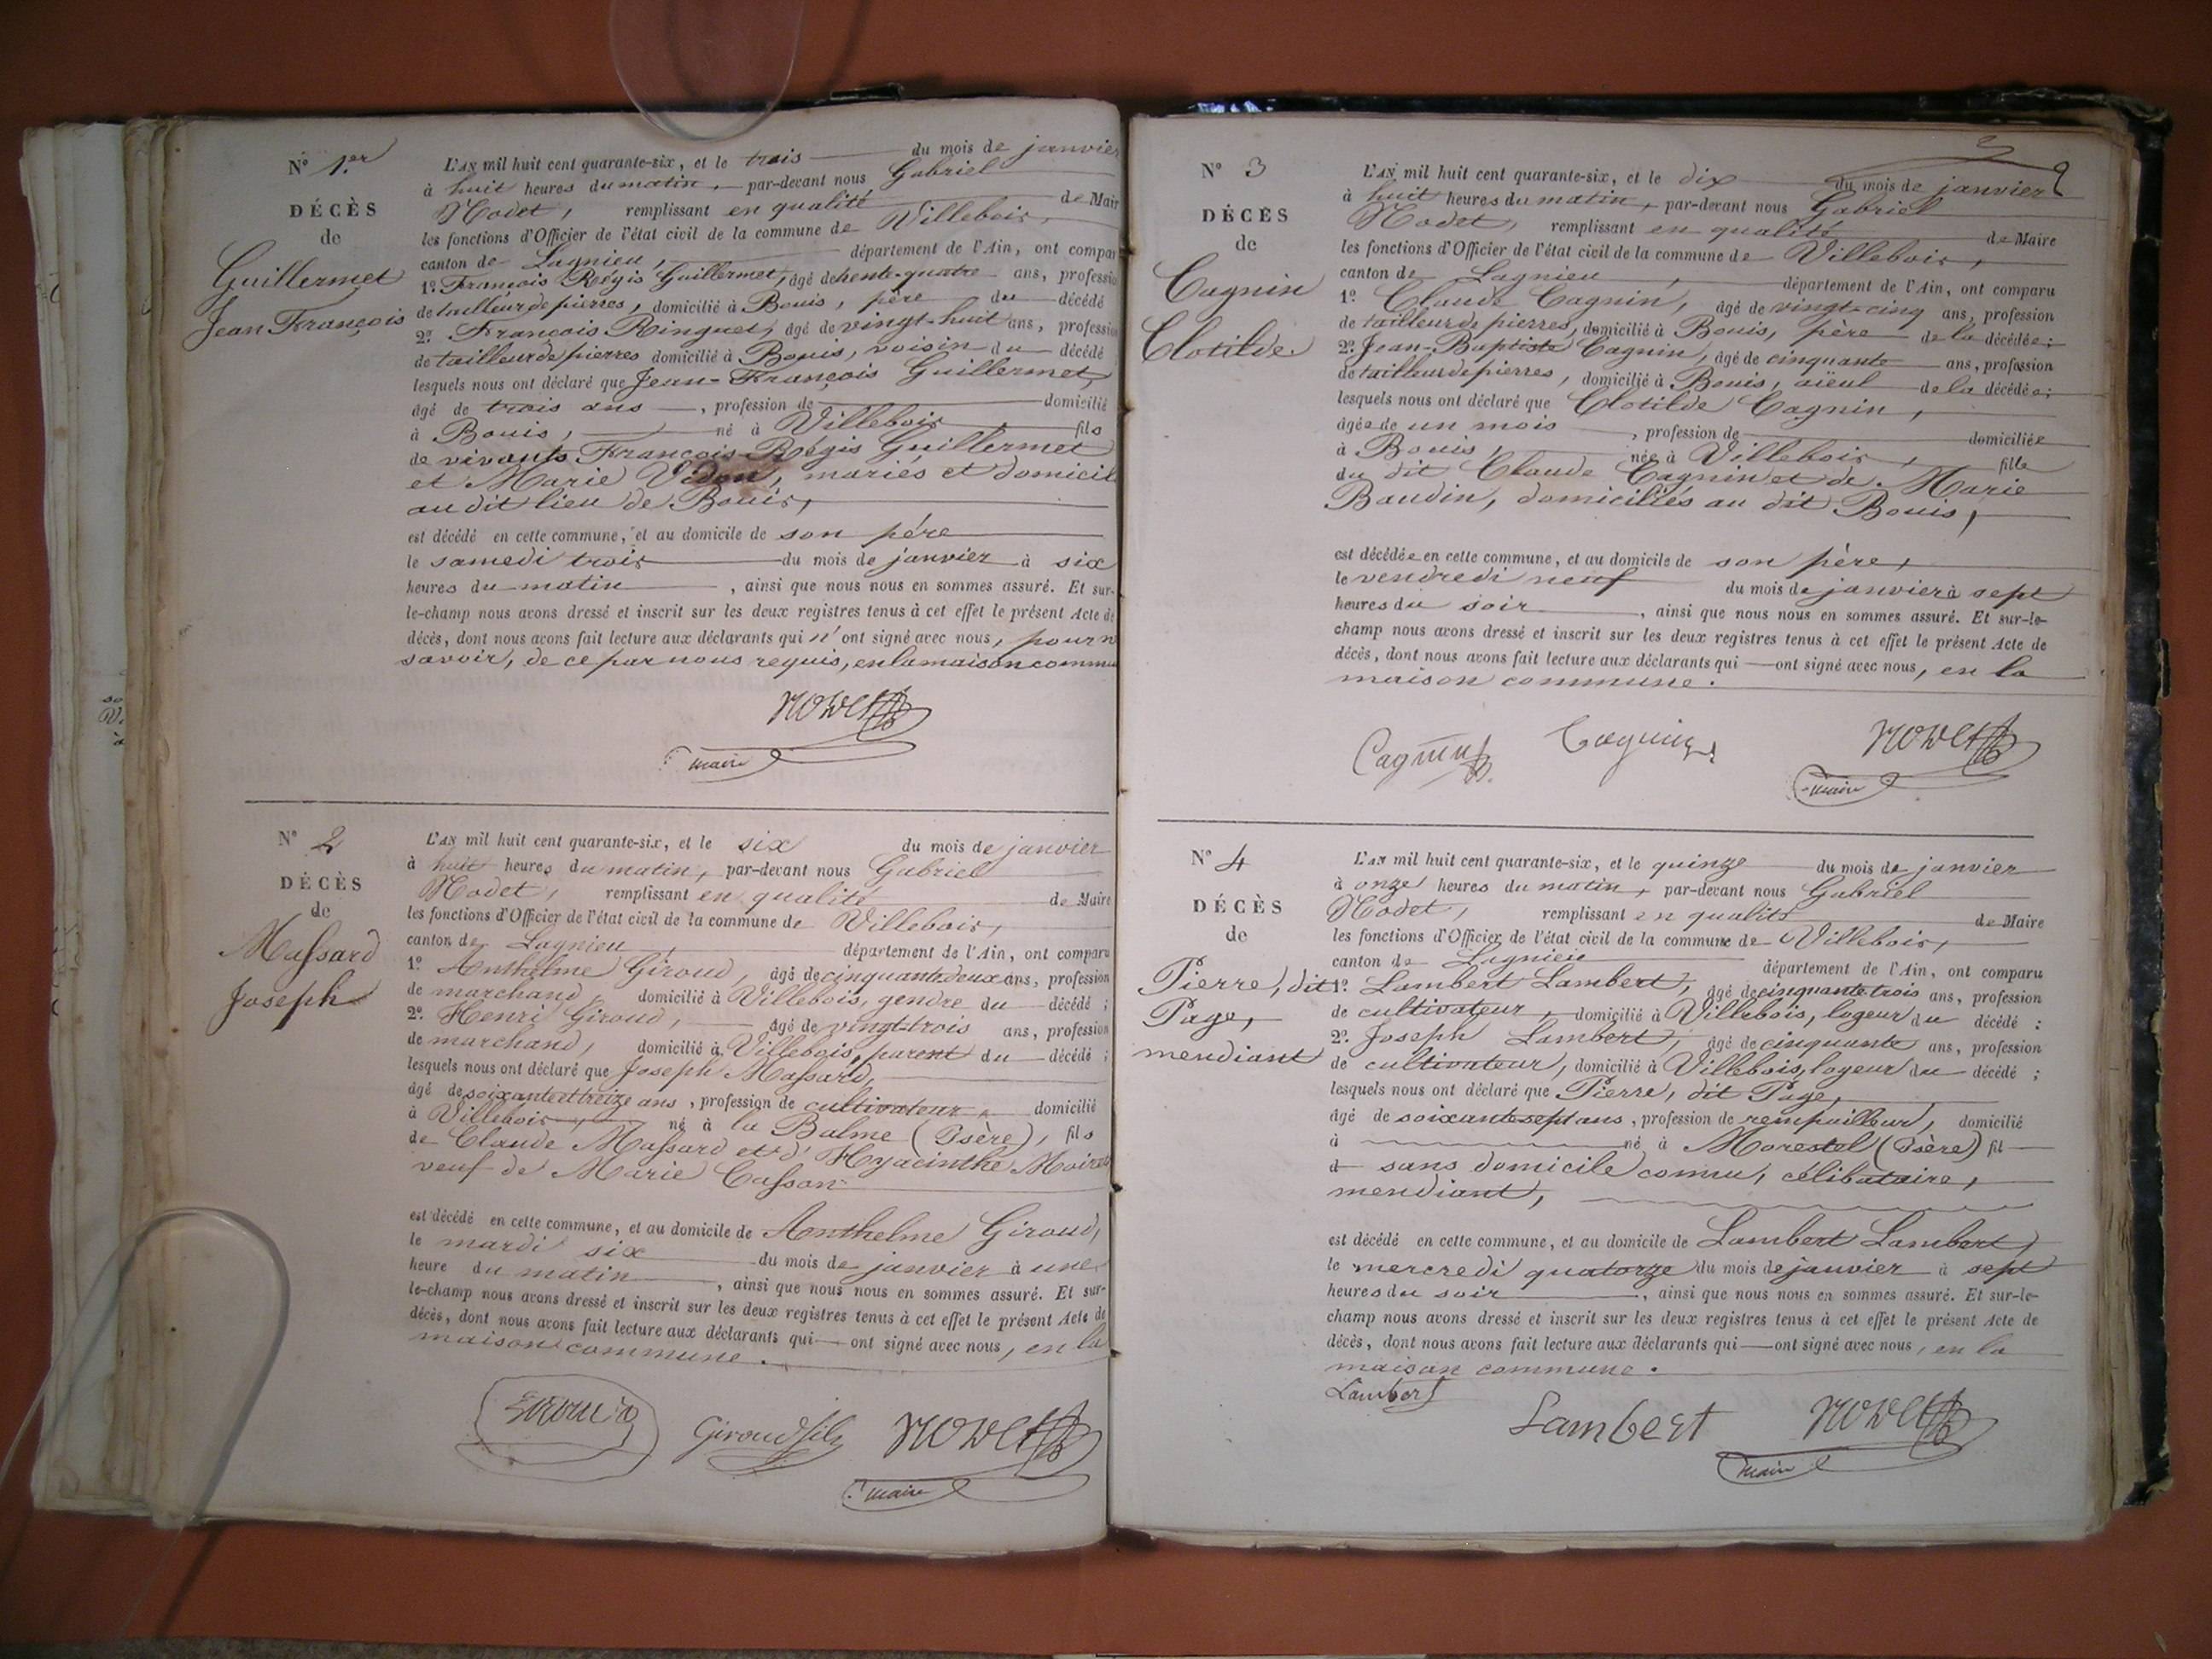 N° 1.er
DÉCÈS
de
Guillermet
Jean François
L'AN mil huit cent quarante-six, et le trois du mois de janvier
à huit heures du matin, par-devant nous Gabriel
Nodet, remplissant en qualité de Mair
les fonctions d'Officier de l'état civil de la commune de Villebois,
canton de Lagnieu, département de l'Ain, ont compar
1° François Régis Guillermet, âgé de trente-quatre ans, professio
de tailleur de pierres, domicilié à Bouis, père du décédé
2° François Ringuet, âgé de vingt-huit ans, profession
de tailleur de pierres domicilié à Bouis, voisin du décédé
lesquels nous ont déclaré que Jean-François Guillermet,
âgé de trois ans, profession de domicilié
à Bouis, né à Villebois fils
de vivants François-Régis Guillermet
et Marie Vidon, mariés et domicil
au dit lieu de Bouis,
est décédé en cette commune, et au domicile de son père
le samedi trois du mois de janvier à six
heures du matin, ainsi que nous nous en sommes assuré. Et sur-
le-champ nous avons dressé et inscrit sur les deux registres tenus à cet effet le présent Acte de
décès, dont nous avons fait lecture aux déclarants qui n'ont signé avec nous, pour n
savoir, de ce par nous requis, en la maison commu
Nodet
maire
N° 2
DÉCÈS
de
Massard
Joseph
L'AN mil huit cent quarante-six, et le six du mois de janvier
à huit heures du matin, par-devant nous Gabriel
Nodet, remplissant en qualité de Maire
les fonctions d'Officier de l'état civil de la commune de Villebois,
canton de Lagnieu, département de l'Ain, ont comparu
1° Anthelme Giroud, âgé de cinquante deux ans, profession
de marchand, domicilié à Villebois, gendre du décédé ;
2° Henri Giroud, âgé de vingt-trois ans, profession
de marchand, domicilié à Villebois, parent du décédé ;
lesquels nous ont déclaré que Joseph Massard,
âgé de soixante et treize ans, profession de cultivateur, domicilié
à Villebois, né à la Balme (Isère), fils
de Claude Massard et d'Hyacinthe Moiret
veuf de Marie Casson
est décédé en cette commune, et au domicile de Anthelme Giroud,
le mardi six du mois de janvier à une
heure du matin, ainsi que nous nous en sommes assuré. Et sur-
le-champ nous avons dressé et inscrit sur les deux registres tenus à cet effet le présent Acte de
décès, dont nous avons fait lecture aux déclarants qui ont signé avec nous, en la
maison commune.
Giroud Giroud fils Nodet
maire
N° 3
DÉCÈS
de
Cagnin
Clotilde.
2
L'AN mil huit cent quarante-six, et le dix du mois de janvier
à huit heures du matin, par-devant nous Gabriel
Nodet, remplissant en qualité de Maire
les fonctions d'Officier de l'état civil de la commune de Villebois,
canton de Lagnieu, département de l'Ain, ont comparu
1° Claude Cagnin, âgé de vingt-cinq ans, profession
de tailleur de pierres, domicilié à Bouis, père de la décédée :
2° Jean-Baptiste Cagnin, âgé de cinquante ans, profession
de tailleur de pierres, domicilié à Bouis, aïeul de la décédée ;
lesquels nous ont déclaré que Clotilde Cagnin,
âgée de un mois, profession de domiciliée
à Bouis, née à Villebois, fille
du dit Claude Cagnin et de Marie
Baudin, domiciliés au dit Bouis,
est décédée en cette commune, et au domicile de son père,
le vendredi neuf du mois de janvier à sept
heures du soir, ainsi que nous nous en sommes assuré. Et sur-le-
champ nous avons dressé et inscrit sur les deux registres tenus à cet effet le présent Acte de
décès, dont nous avons fait lecture aux déclarants qui ont signé avec nous, en la
maison commune.
Cagnin Cagnin Nodet
maire
N° 4
DÉCÈS
de
Pierre, dit
Page,
mendiant
L'AN mil huit cent quarante-six, et le quinze du mois de janvier
à onze heures du matin, par-devant nous Gabriel
Nodet, remplissant en qualité de Maire
les fonctions d'Officier de l'état civil de la commune de Villebois,
canton de Lagnieu département de l'Ain, ont comparu
1° Lambert Lambert, âgé de cinquante trois ans, profession
de cultivateur, domicilié à Villebois, logeur du décédé :
2° Joseph Lambert, âgé de cinquante ans, profession
de cultivateur, domicilié à Villebois, logeur du décédé ;
lesquels nous ont déclaré que Pierre, dit Page,
âgé de soixante sept ans, profession de rempailleur, domicilié
à né à Morestel (Isère) fil
d sans domicile connu, célibataire,
mendiant,
est décédé en cette commune, et au domicile de Lambert Lambert,
le mercredi quatorze du mois de janvier à sept
heures du soir, ainsi que nous nous en sommes assuré. Et sur-le-
champ nous avons dressé et inscrit sur les deux registres tenus à cet effet le présent Acte de
décès, dont nous avons fait lecture aux déclarants qui ont signé avec nous, en la
maison commune.
Lambert
Lambert Nodet
maire